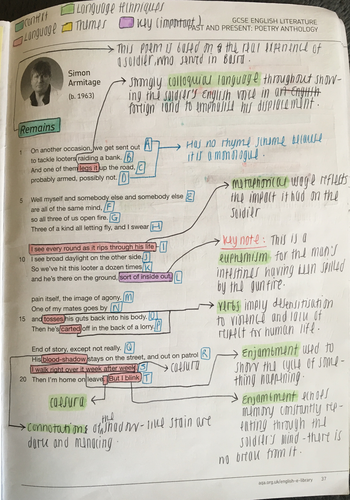 Context
Language techniques
Language
Themes
Key (important)
GCSE ENGLISH LITERATURE
PAST AND PRESENT: POETRY ANTHOLOGY
This poem is based on the real experience of
a soldier who served in Basra.
Simon
Armitage
(b. 1963)
strongly colloquial language throughout show-
ing the soldier's English voice in art English
foreign land to emphasise his displacement.
Remains
1 On another occasion, we get sent out A
to tackle looters raiding a bank. B
And one of them legs it up the road, C
probably armed, possibly not. D
Has no rhyme scheme because
it is a monologue.
5 Well myself and somebody else and somebody else E
are all of the same mind, F
so all three of us open fire. G
Three of a kind all letting fly, and I swear H
metaphorical usage reflects
the impact it had on the
soldier
I see every round as it rips through his life – I
10 I see broad daylight on the other side. J
So we've hit this looter a dozen times K
and he's there on the ground, sort of inside out, L
key note: This is a
euphemism for the man's
intestines having been spilled
by the gunfire.
pain itself, the image of agony. M
One of my mates goes by N
15 and tosses his guts back into his body.
Then he's carted off in the back of a lorry.
verbs imply desensitisation
to violence and lack of
respect for human life.
End of story, except not really. Q
His blood-shadow stays on the street, and out on patrol R
I walk right over it week after week. S
20 Then I'm home on leave. But I blink T
caesura
caesura
Enjambment used to
show the cycle of some-
thing happening.
Enjambment echoes
memory constantly rep-
eating through the
soldier's mind - there is
no break from it.
connotations of the shadow-like stain are
dark and menacing.
aqa.org.uk/english-e-library 37